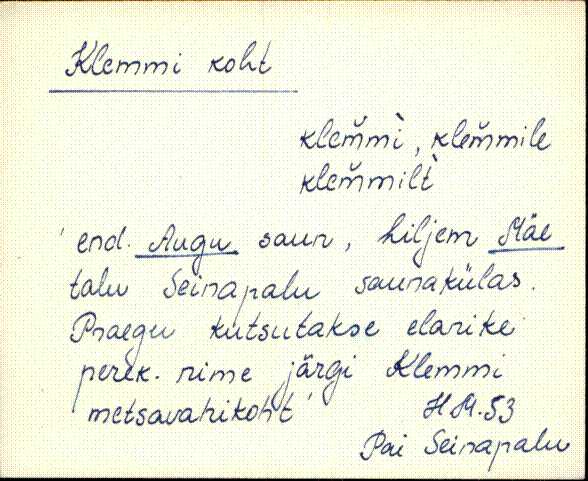 Klemmi koht
klem̆mì, klem̆mile
klem̆milt̀
' end. Augu saun, hiljem Mäe
talu Seinapalu saunakülas.
Praegu kutsutakse elanike
perek. nime järgi Klemmi
metsavahikoht '
H M. 53
Pai Seinapalu